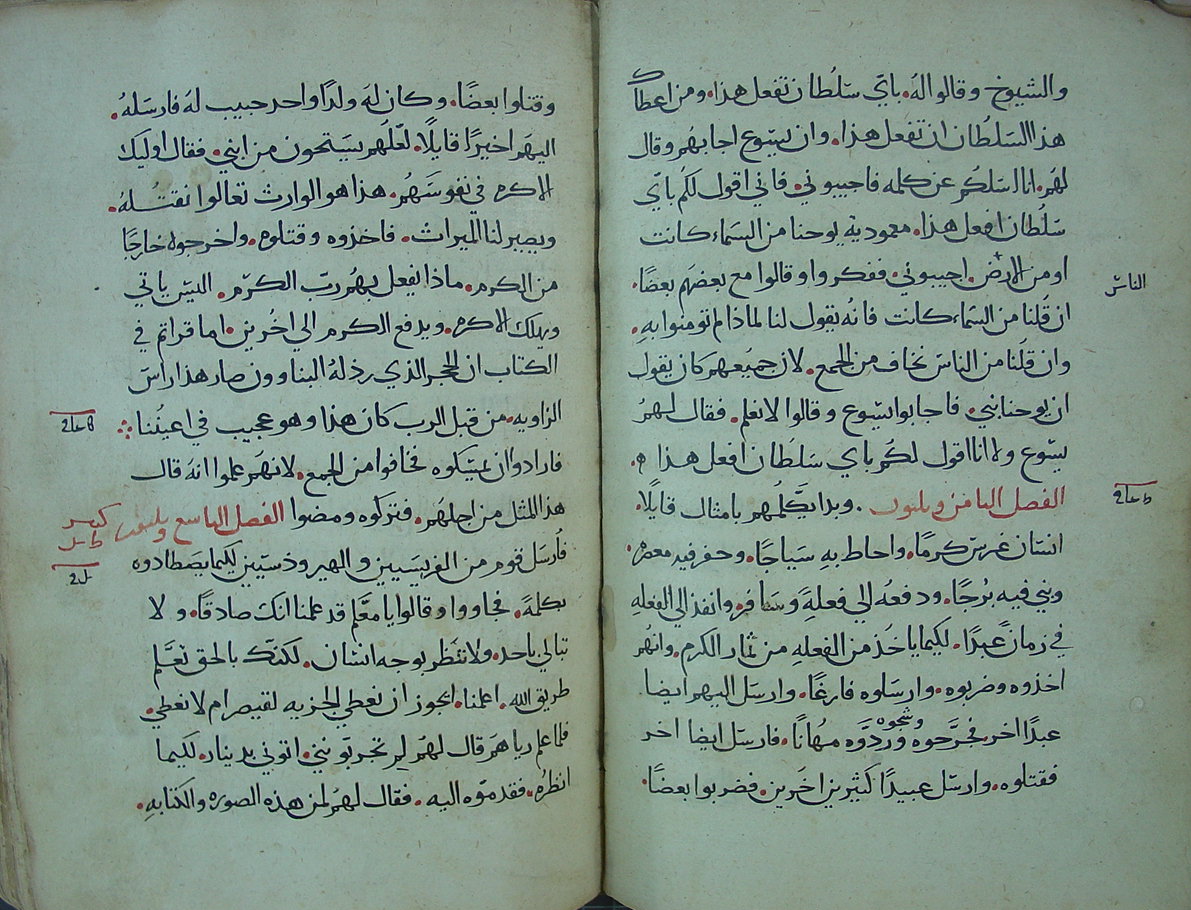 والشيوخ وقالوا له. باي سلطان تفعل هذا. ومن اعطاك
هذا السلطان ان تفعل هذا. وان يسوع اجابهم وقال
لهم. انا اسلكم عن كلمه فاجيبوني. فاني اقول لكم باي
سلطان افعل هذا. معمودية يوحنا من السماء كانت
او من الارض. اجيبوني. ففكروا وقالوا مع بعضهم بعضًا.
الناس
ان قُلنا من السماء كانت فانه يقول لنا لماذا لم تومنوا به.
وان قلنا من الناس نخاف من الجمع. لان جميعهم كان يقول
ان يوحنا نبي. فاجابوا يسوع وقالوا لا نعلم. فقال لهم
يسوع ولا انا اقول لكم باي سلطان افعل هذا.
الفصل الثامن وثلثون. وبدا يكلمهم بامثال قايلًا.
انسان غرس كرمًا. واحاط به سياجًا. وحفر فيه معصره.
وبنى فيه بُرجًا. ودفعه الى فعلةٍ وسافر. وانفذ الى الفعله
في زمان عبدًا. لكيما ياخذ من الفعله من ثمار الكرم. وانهم
اخذوه وضربوه. وارسلوه فارغًا. وارسل اليهم ايضا
عبدًا اخر فجرَّحوه وشجوه وردَّوه مهُانًا. فارسل ايضا اخر
فقتلوه. وارسل عبيدًا كثيرين اخَرين. فضربوا بعضًا.
وقتلوا بعضًا. وكان له ولدًا واحد حبيب له فارسله.
اليهم اخيرًا قايلًا. لعّلهم يستحون من ابني. فقال اوليك
الاكره في نفوسهم. هذا هو الوارث تعالوا نقتله.
ويصير لنا الميراث. فاخذوه وقتلوه. واخرجوه خارجًا
من الكرم. ماذا يفعل بهم ربّ الكرّم. اليس ياتي
ويهلك الاكره. ويدفع الكرم الى اخُرين. اما قراتم في
الكتاب ان الحجر الذي رذله البناوون صار هذا راس
الزاويه. من قبل الرب كان هذا وهو عجيب في اعيُننا
فارادوا ان يمسكوه فخافوا من الجمع. لانهم علموا انه قال
هذا المثل من اجلهم. فتركوه ومضوا الفصل التاسع وثلثون
فارسل قوم من الفريسيين والهيروذسيين لكيما يصطادوه
بكلمةً. فجاووا وقالوا يا معّلم قد علمنا انك صادقًا. ولا
تبالي باحد. ولا تنظر بوجه انسان. لكنك بالحق تعلّم
طريق الله. اعلمنا. ايجوز ان نعطي الجزيه لقيصر ام لا نعطي.
فلما علم رياهم قال لهم لِم تجربونني. اتوني بدينار. لكيما
انظره. فقدموّه اليه. فقال لهم لمن هذه الصوره والكتابه.